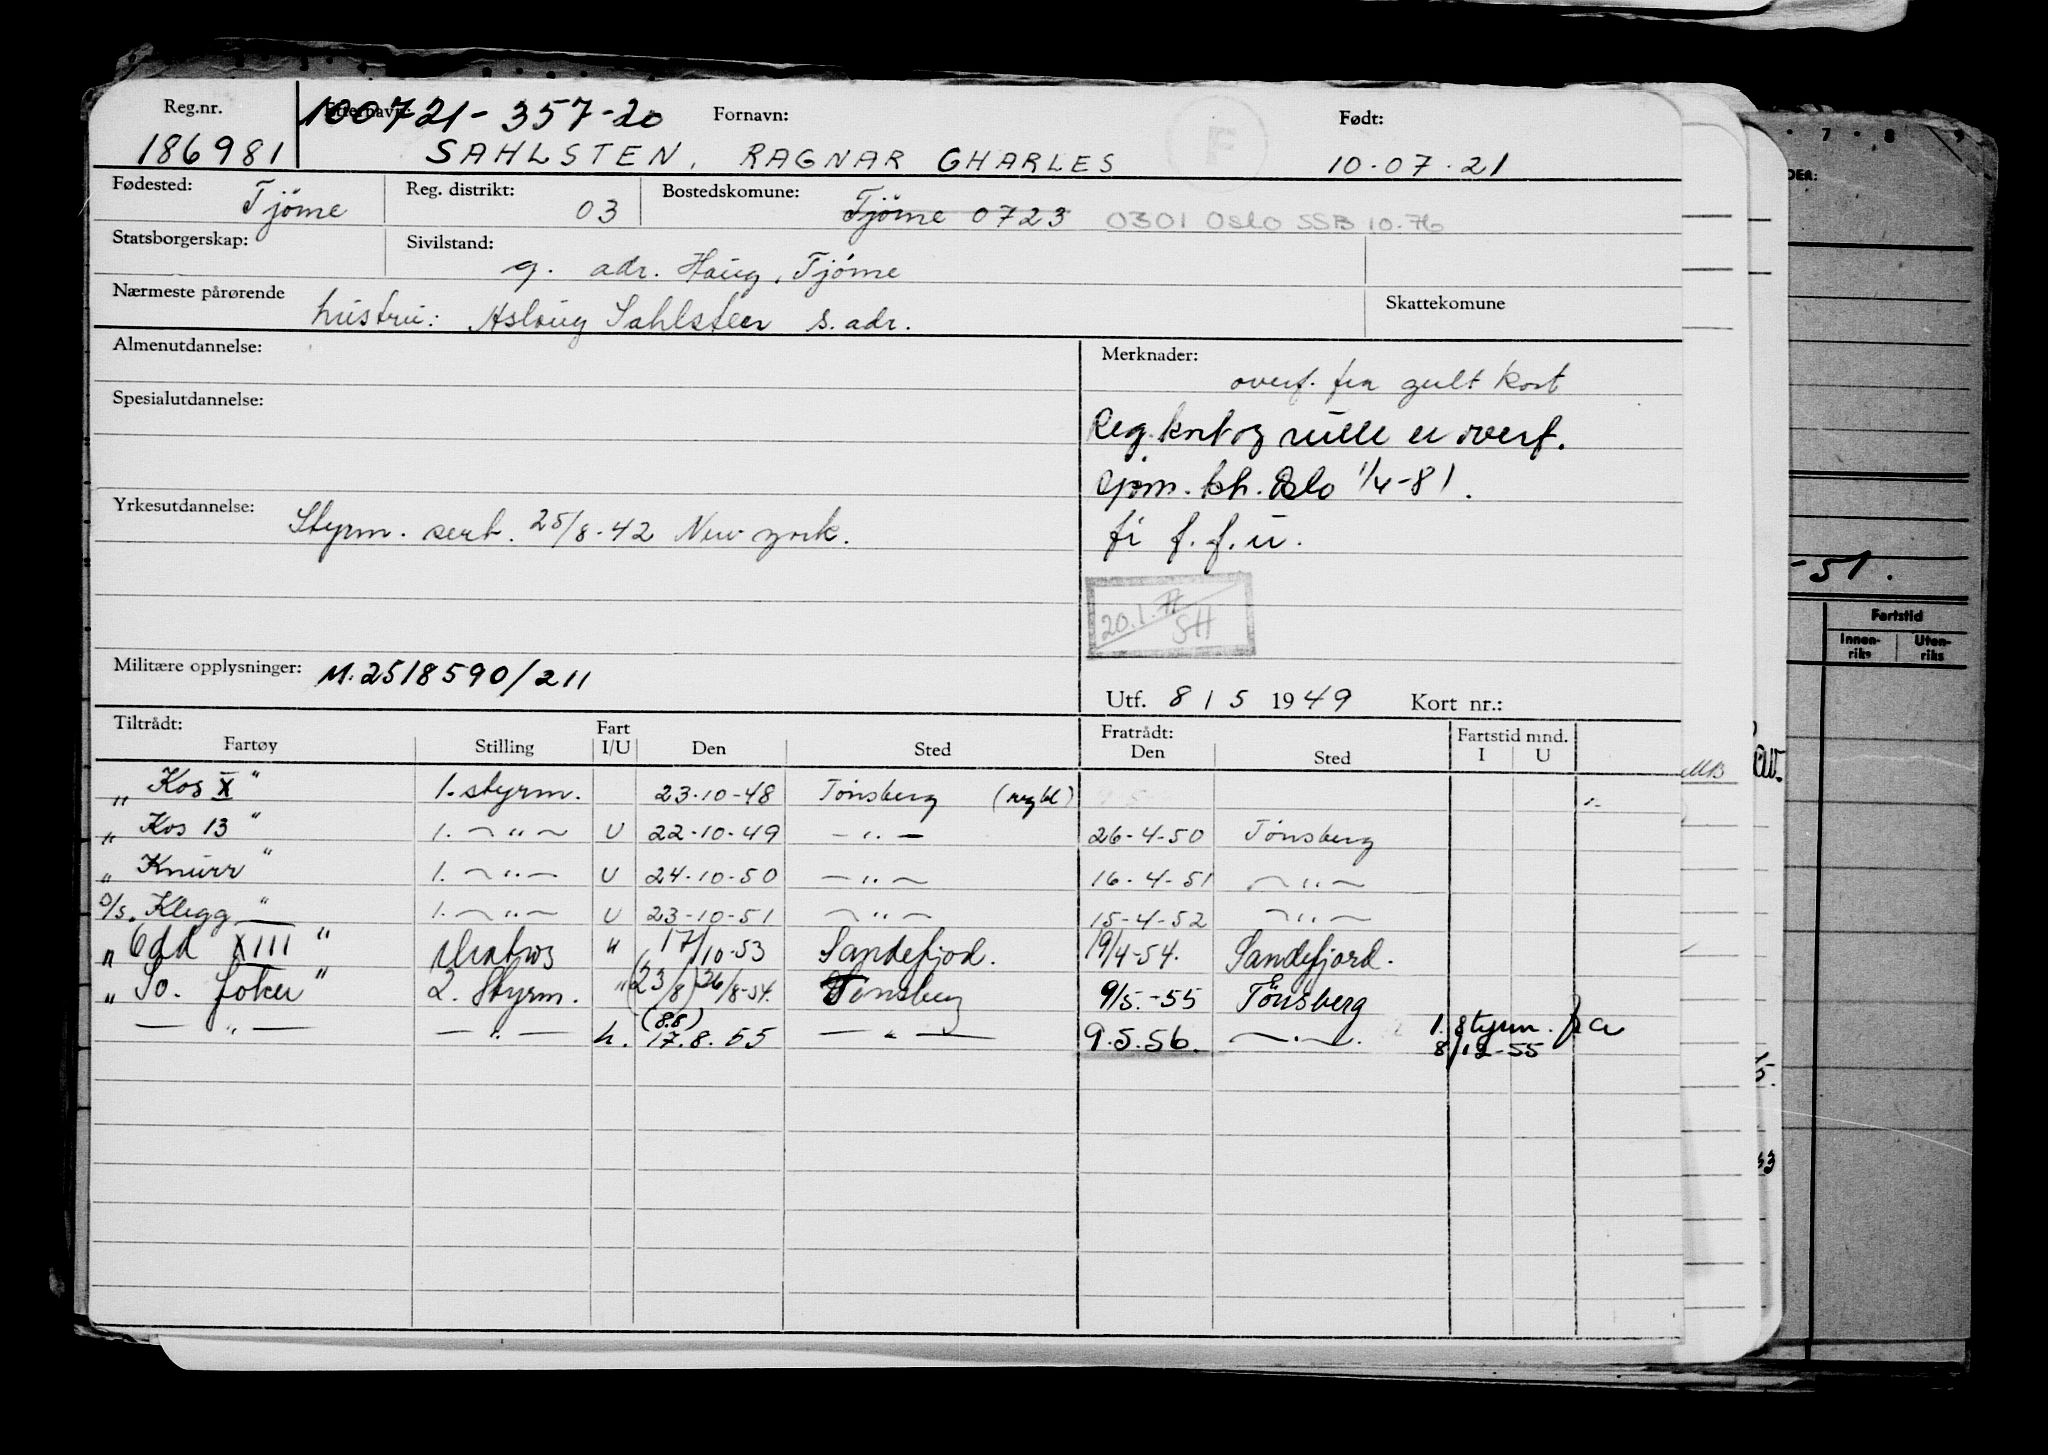 Reg.nr. Etternavn: 100721-357-20 Fornavn: F Født:
186981 SAHLSTEN, RAGNAR CHARLES 10-07-21
Fødested: Tjöme Reg. distrikt: 03 Bostedskomune: Tjöme 0723 0301 Oslo SSB 10.76
Statsborgerskap: Sivilstand: g. adr. Haug, Tjöme
Nærmeste pårørende hustru: Aslaug Sahlsten s. adr. Skattekomune
Almenutdannelse: Merknader:
overf. fra gult kort
Spesialutdannelse:
Reg. kort og rulle er overf.
gjom. kh. Oslo 1/4-81.
Yrkesutdannelse: Styrm. sert. 25/8-42 New york.
fi f.f.u.
20.1. SH
Militære opplysninger: M.2518590/211
Utf. 8 / 5 1949 Kort nr.:
Tiltrådt: Fart Fratrådt: Fartstid mnd.
Fartøy Stilling I/U Den Sted Den Sted I U
„ Kos X “ 1. styrm. 23-10-48 Tönsberg
„ Kos 13 “ 1. — „ — U 22-10-49 — „ — 26-4-50 Tönsberg
„ Knurr “ 1. — „ — U 24-10-50 — „ — 16-4-51 — „ —
D/s. Klegg “ 1. — „ — U 23-10-51 — „ — 15-4-52 — „ —
„ Odd XIII “ Matros “ 17/10-53 Sandefjord. 19/4-54. Sandefjord.
„ So. Joker “ 2. Styrm. “ (23/8) 26/8-54. Tönsberg 9/5.-55 Tönsberg
— „ — — „ — (8.8) 17.8.55 — „ — 9.5.56. — „ — 1. styrm. fra
8/12-55
-51.
Fartstid
Innen-riks Uten-riks